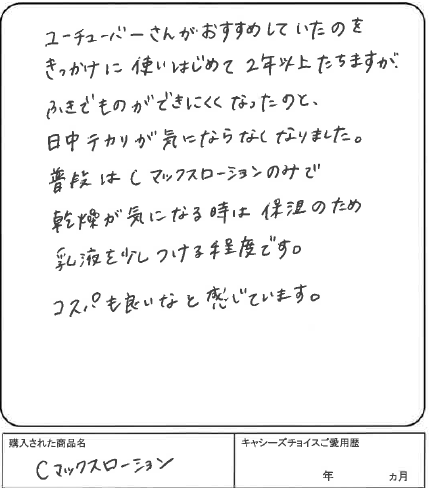 ユーチューバーさんがおすすめしていたのを
きっかけに使いはじめて2年以上たちますが、
ふきでものができにくくなったのと、
日中テカリが気にならなくなりました。
普段はCマックスローションのみで
乾燥が気になる時は保湿のため
乳液を少しつける程度です。
コスパも良いなと感じています。
購入された商品名
Cマックスローション
キャシーズチョイスご愛用歴
年 ヵ月